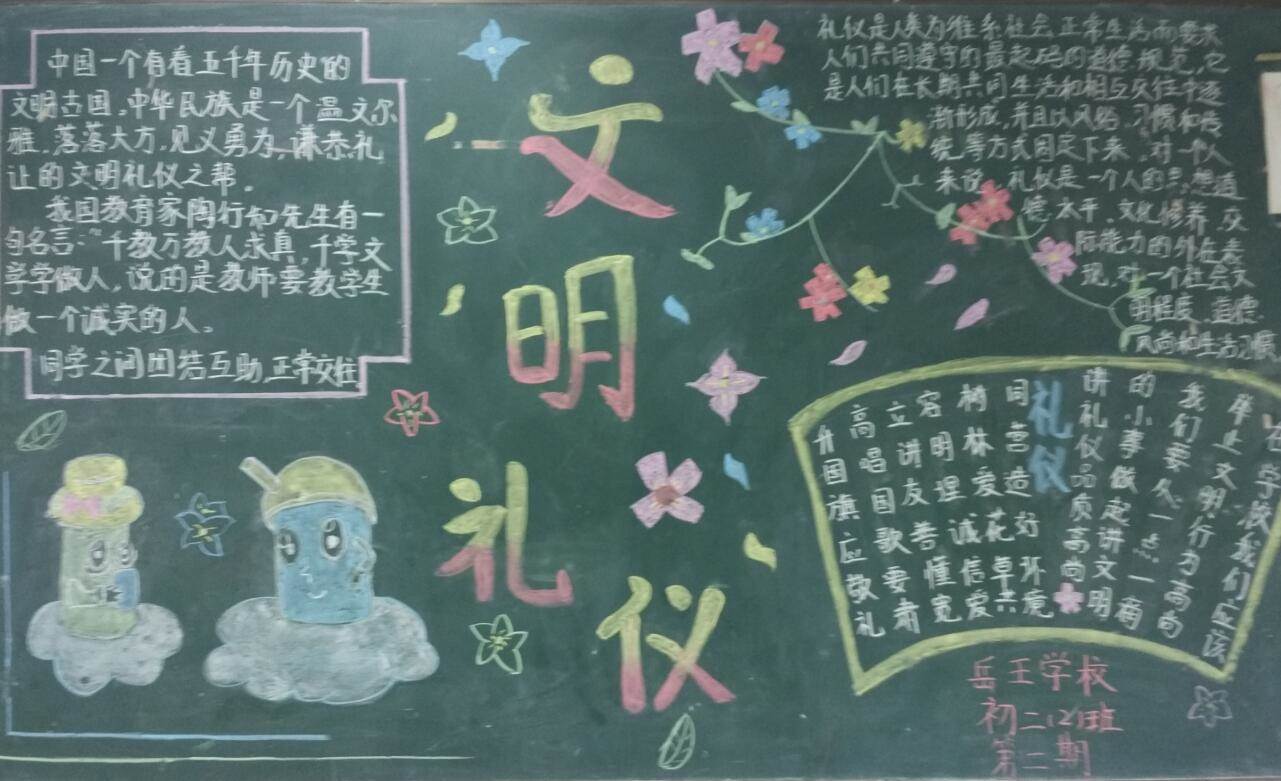 中国一个有着五千年历史的
文明古国，中华民族是一个温文尔
雅，落落大方，见义勇为，谦恭礼
让的文明礼仪之帮。
我国教育家陶行知先生有一
句名言："千教万教人求真，千学文
学学做人，说的是教师要教学生
做一个诚实的人。
同学之间团结互助，正常交往
文明礼仪
礼仪是人类为维系社会正常生活而要求
人们共同遵守的最起码的道德规范，它
是人们在长期共同生活和相互交往中逐
渐形成，并且以风俗、习惯和传
统等方式固定下来，对一个人
来说，礼仪是一个人的思想道
德水平，文化修养，交
际能力的外在表
现，对一个社会文
明程度、道德
风尚和生活习惯
在学校我们应该
举止文明行为高尚
我们要从一点一滴
的小事做起讲文明
讲礼仪品质高尚
礼仪
同营造好环境
树林爱花草共
容明理诚信爱
立讲友善懂宽
高唱国歌要肃
升国旗应敬礼
岳王学校
初二(2)班
第二期